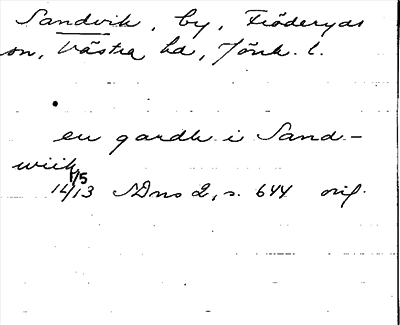 Sandvik, by, Fröderyds
sn, Västra hd, Jönk. l.
en gardh i Sand-
wiik
14 1/5 13 SDns 2, s. 644 orig.